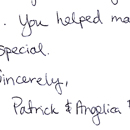 . You helped ma
special.
Sincerely,
Patrick & Angelica